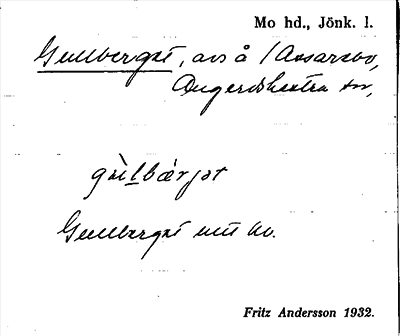 Mo hd., Jönk. l.
Gullberget, avs å /Assarebo,
Angerdshestra sn,
gùlbærjət
Gullberget mtl ho.
Fritz Andersson 1932.